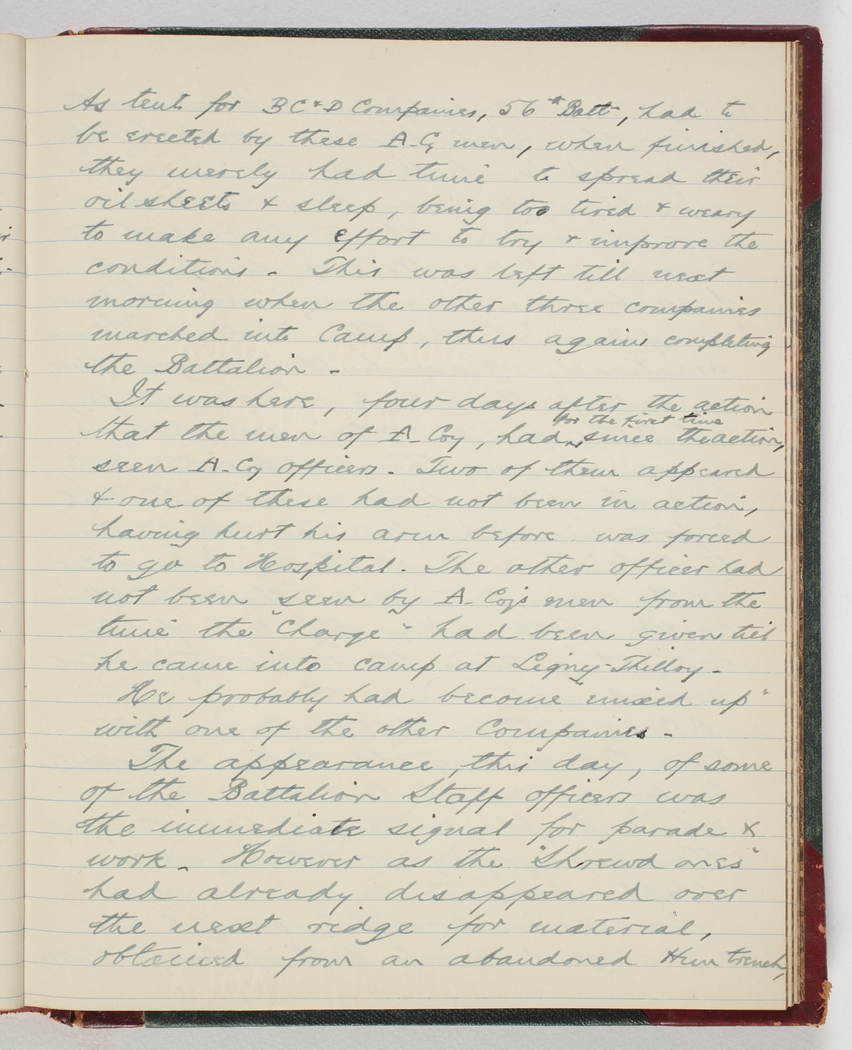 As tents for B C & D Companies, 56th Batt, had to
be erected by these A-Cy men, when finished,
they merely had time to spread their
oil sheets & sleep, being too tired & weary
to make any effort to try & improve the
conditions. This was left till next
morning when the other three companies
marched into Camp, thus again completing
the Battalion.
It was here, four days after the action
that the men of A-Coy, had for the first time since the action,
seen A-Cy officers. Two of them appeared
& one of these had not been in action,
having hurt his arm before was forced
to go to Hospital. The other officer had
not been seen by A. Coy's men from the
time the "Charge" had been given till
he came into camp at Ligny-Thilloy.
He probably had become "mixed up"
with one of the other Companies.
The appearance, this day, of some
of the Battalion Staff officers was
the immediate signal for parade &
work. However as the "Shrewd ones"
had already disappeared over
the next ridge for material,
obtained from an abandoned Hun trench,